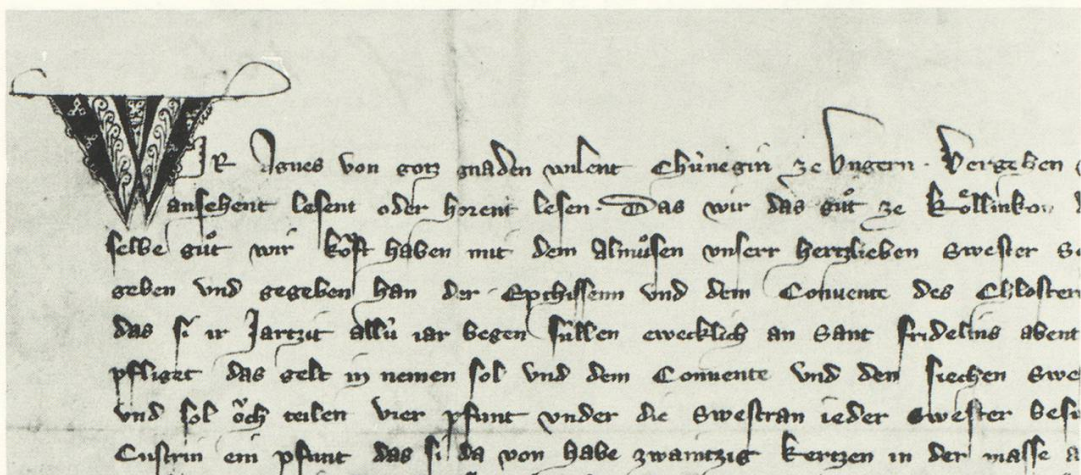 WIR Agnes von gotz gnaden wilent Chu̍negin ze Vngern · Vergehen
ansehent lesent oder horent lesen · Das wir das gůt ze Ko̍llinkon
selbe gůt wir ko̍ft haben mit dem almůsen vnserr hertzlieben swester
geben vnd gegeben han der Epthissenn vnd dem Conuente des Chloster
das si ir Jartzit allu̍ iar begen su̍llen ewecklich an sant fridelins abent
pfliget das gelt in nemen sol vnd dem Conuente vnd den siechen Swe
vnd sol o̍ch teilen vier pfunt vnder die Swestran ieder swester besu
Custrin ein pfunt das si da von habe zwaintzig kertzen in der masse a